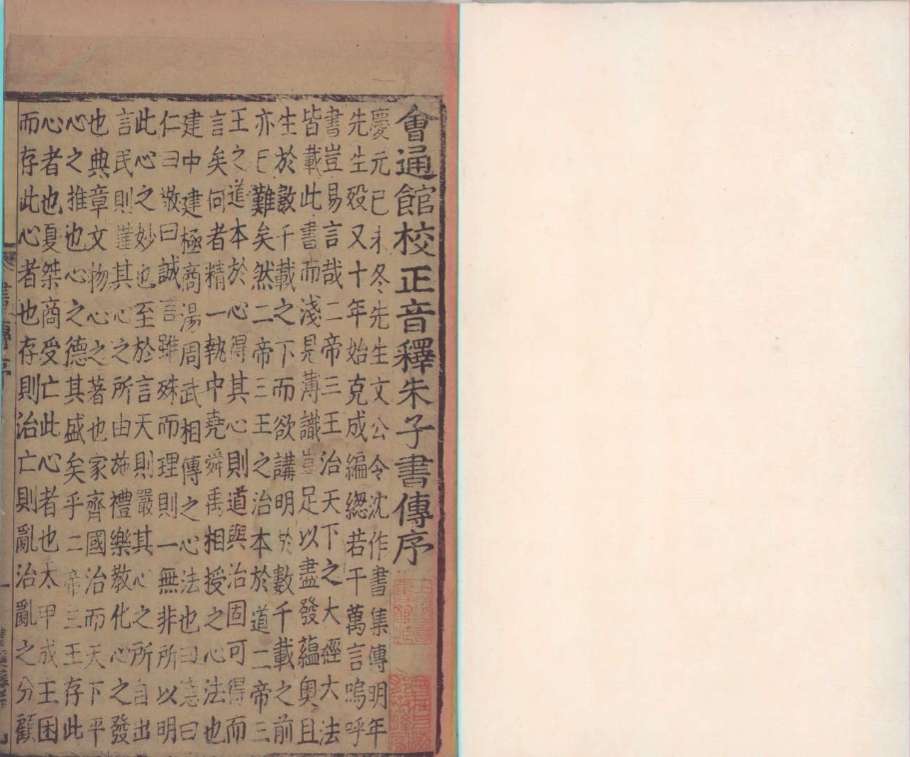 會通館校正音釋朱子書傳序
慶元已未冬先生文公令沈作書集傳明年
先生殁又十年始克成編緫若干萬言嗚呼
書豈易言哉二帝三王治天下之大經大法
皆載此書而淺見薄識豈足以盡發蘊奥且
生於數千載之下而欲講明於數千載之前
亦已難矣然二帝三王之治本於道二帝三
王之道本於心得其心則道與治固可得而
言矣何者精一執中堯舜禹相授之心法也
建中建極商湯周武相傳之心法也曰德曰
仁曰敬曰誠言雖殊而理則一無非所以明
此心之妙也至於言天則嚴其心之所自出
言民則謹其心之所由施禮樂教化心之發
也典章文物心之著也家齊國治而天下平
心之推也心之德其盛矣乎二帝三王存此
心者也夏桀商受亡此心者也太甲成王困
而存此心者也存則治亡則亂治亂之分顧
書傳序